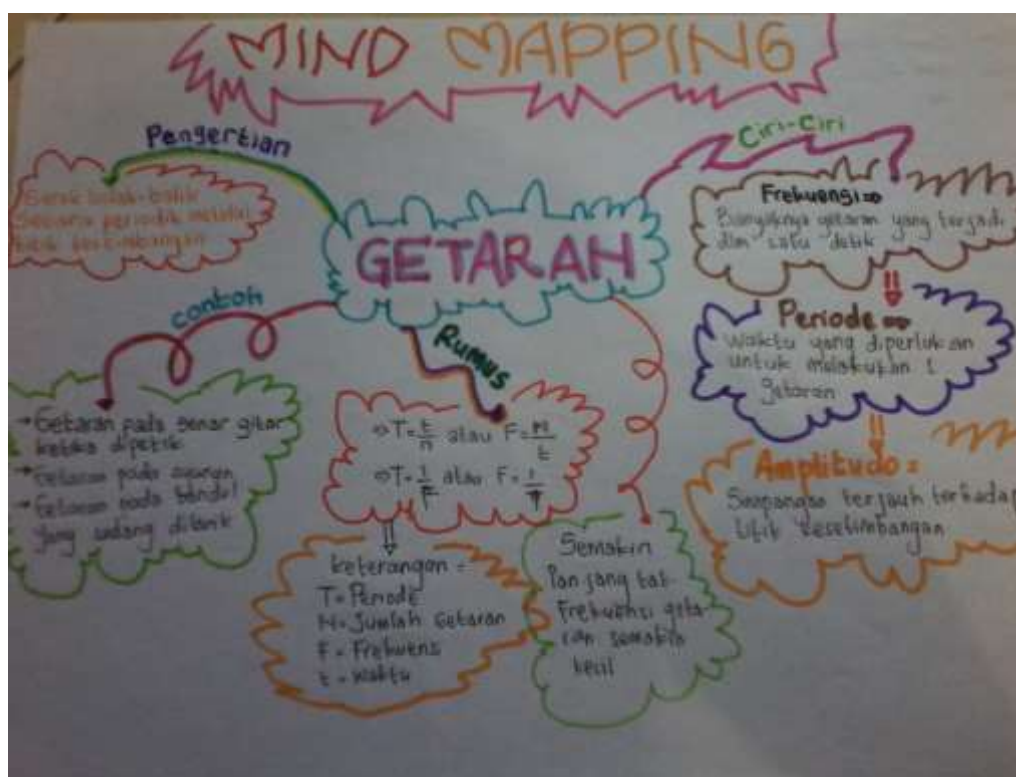 MIND MAPPING
Pengertian
Gerak bolak-balik
Secara periodik melalui
titik kesetimbangan
Ciri-Ciri
Frekuensi ⇒
Banyaknya getaran yang terjadi
dlm satu detik
Periode ⇒
Waktu yang diperlukan
untuk melakukan 1
getaran
Amplitudo =
Simpangan terjauh terhadap
titik kesetimbangan
GETARAN
contoh
→ Getaran pada senar gitar
ketika dipetik
→ Getaran pada ayunan
→ Getaran pada bandul
yang sedang ditarik
Rumus
⇒ T = t/n atau F = N/t
⇒ T = 1/F atau F = 1/T
keterangan =
T = Periode
N = Jumlah Getaran
F = Frekuens
t = waktu
Semakin
Panjang tali
Frekuensi geta-
ran semakin
kecil